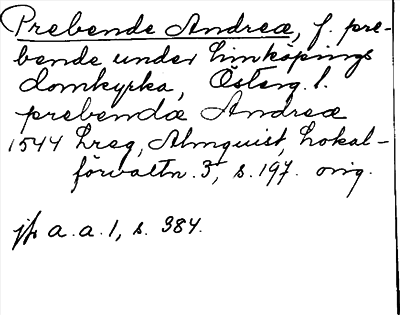 Prebende Andreæ, f. pre-
bende under Linköpings
domkyrka, Österg. l.
prebenda Andreæ
1544 Lreg, Almquist, Lokal-
förvaltn. 3, s. 197. orig.
jfr a. a. 1, s. 384.